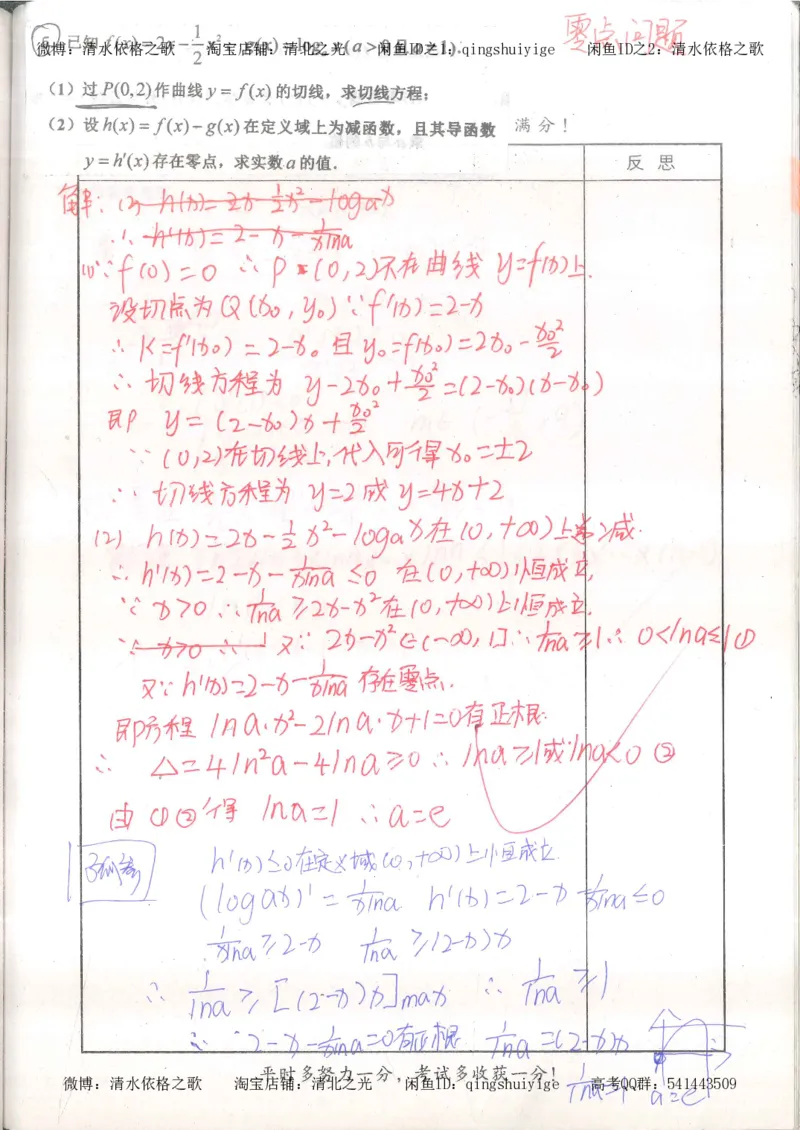 零点问题
5. 已知 f(x)=2x-1/2x²
微博：清水依格之歌 淘宝店铺：清北之光 闲鱼ID之1：qingshuiyige 闲鱼ID之2：清水依格之歌
(1) 过P(0,2)作曲线y=f(x)的切线，求切线方程；
(2) 设h(x)=f(x)-g(x)在定义域上为减函数，且其导函数 满分！
y=h'(x)存在零点，求实数a的值．
反思
解：(2) h(x)=2x-1/2x²-logax
∴h'(x)=2-x-1/xlna
(1)∵f(0)=0 ∴P(0,2)不在曲线 y=f(x)上.
设切点为Q(x0,y0)∵f'(x)=2-x
∴K=f'(x0)=2-x0 且 y0=f(x0)=2x0-x0²/2
∴切线方程为 y-2x0+x0²/2=(2-x0)(x-x0)
即 y=(2-x0)x+x0²/2
∵(0,2)在切线上,代入可得x0=±2
∴切线方程为 y=2或y=4x+2
(2) h(x)=2x-1/2x²-logax在(0,+∞)上递减.
∴h'(x)=2-x-1/xlna≤0 在(0,+∞)恒成立,
∵x>0 ∴1/lna≥2x-x²在(0,+∞)上恒成立.
∵x>0 ∴1 又∵2x-x²∈(-∞,1]∴1/lna≥1∴0<lna≤1①
又∵h'(x)=2-x-1/xlna 存在零点.
即方程 lna·x²-2lna·x+1=0有正根.
∴ △=4ln²a-4lna≥0 ∴lna≥1或lna<0 ②
由①②得 lna=1 ∴a=e
h'(x)≤0在定义域(0,+∞)上恒成立.
(logax)'=1/xlna h'(x)=2-x-1/xlna≤0
1/xlna≥2-x 1/lna≥(2-x)x
∴ 1/lna≥[(2-x)x]max ∴1/lna≥1
∵2-x-1/xlna=0有正根 1/lna=(2-x)x
1/lna=1 a=e
平时多努力一分，考试多收获一分！
微博：清水依格之歌 淘宝店铺：清北之光 闲鱼ID：qingshuiyige 高考QQ群：541443509